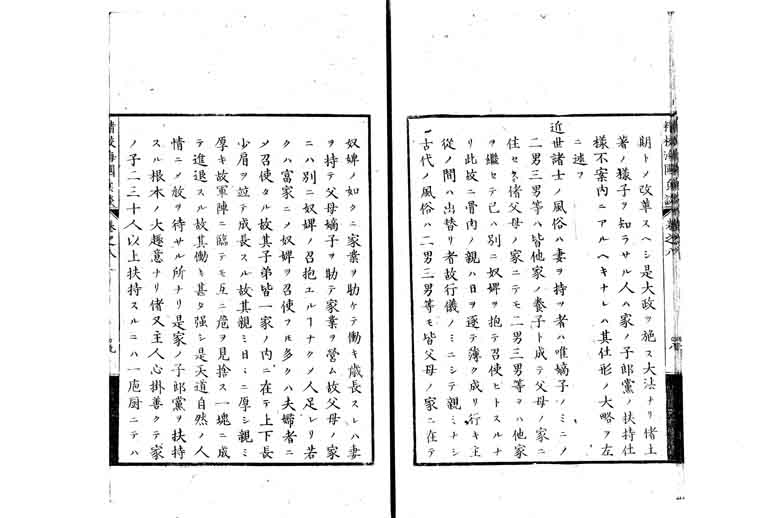 期トノ改革スヘシ是大政ヲ施ス大法ナリ偖土
著ノ様子ヲ知ラサル人ハ家ノ子郎黨ノ扶持仕
様不案内ニアルヘキナレハ其仕形ノ大略ヲ左
ニ述ヲ
近世諸士ノ風俗ハ妻ヲ持ツ者ハ唯嫡子ノミニノ
二男三男等ハ皆他家ノ養子ト成テ父母ノ家ニ
住セス偖父母ノ家ニテモ二男三男等ヲハ他家
ヲ繼セテ已ハ別ニ奴婢ヲ抱テ召使ヒトスルナ
リ此故ニ骨肉ノ親ハ日ヲ逐テ薄ク成リ行キ主
從ノ間ハ出替リ者故行儀ノミニシテ親ミナシ
古代ノ風俗ハ二男三男等モ皆父母ノ家ニ在テ
精校海國兵談 巻之八
奴婢ノ如クニ家業ヲ助ケテ働キ歳長スレハ妻
ヲ持テ父母嫡子ヲ助テ家業ヲ營ム故父母ノ家
ニハ別ニ奴婢ノ召抱エルヿナクメ人足レリ若
クハ富家ニノ奴婢ヲ召使フモ多クハ夫婦者ニ
メ召使タル故其子弟皆一家ノ内ニ在テ上下長
少肩ヲ竝テ成長スル故其親ミニ厚シ親ミ
厚キ故軍陣ニ臨テモ互ニ危ヲ見捨ス一塊ニ成
テ進退スル故其働キ甚タ强シ是天道自然ノ人
情ニメ敢ヲ待サル所ナリ是家ノ子郎黨ヲ扶持
スル根木ノ大趣意ナリ偖又主人心掛善クテ家
ノ子二三十人以上扶持スルニハ一庖厨ニテハ